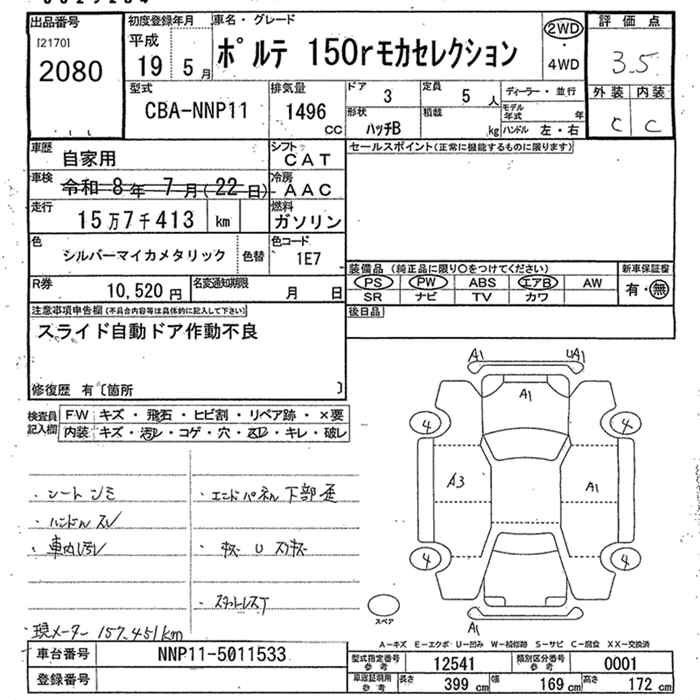 出品番号
[2170]
2080
初度登録年月
平成
19 5月
車名・グレード
ポルテ 150rモカセレクション
2WD
・
4WD
評価点
3.5
外装 内装
C C
型式
CBA-NNP11
排気量
1496
CC
ドア
3
定員
5 人
形状
ハッチB
積載
kg
ディーラー・並行
モデル年式 年
ハンドル 左・右
車歴
自家用
シフト
CAT
車検
令和 8年 7月(22日)
冷房
AAC
走行
15万7千413 km
燃料
ガソリン
色
シルバーマイカメタリック
色替
色コード
1E7
R券
10,520円
名変通知期限
月 日
セールスポイント(正常に機能するものに限ります)
装備品(純正品に限り○をつけてください)
PS PW ABS エアB AW
SR ナビ TV カワ
新車保証書
有・無
後日品
注意事項申告欄(不具合内容等は具体的に記入して下さい)
スライド自動ドア作動不良
修復歴 有〔箇所 〕
検査員記入欄
FW キズ・飛石・ヒビ割・リペア跡・×要
内装 キズ・汚レ・コゲ・穴・凹・キレ・破レ
・シートシミ
・ハンドルスレ
・車内汚レ
・エンドパネル下部歪
・キズ U スリキズ
・スタットレスT
現メーター 157,451km
A1 4A1
A1
4 4
A3 A1
4 4
A1
スペア
A-キズ E-エクボ U-凹み W-補修跡 S-サビ C-腐食 XX-交換済
車台番号
NNP11-5011533
登録番号
型式指定番号
参考
12541
類別区分番号
参考
0001
車庫証明用
参考
長さ 399 cm
幅 169 cm
高さ 172 cm